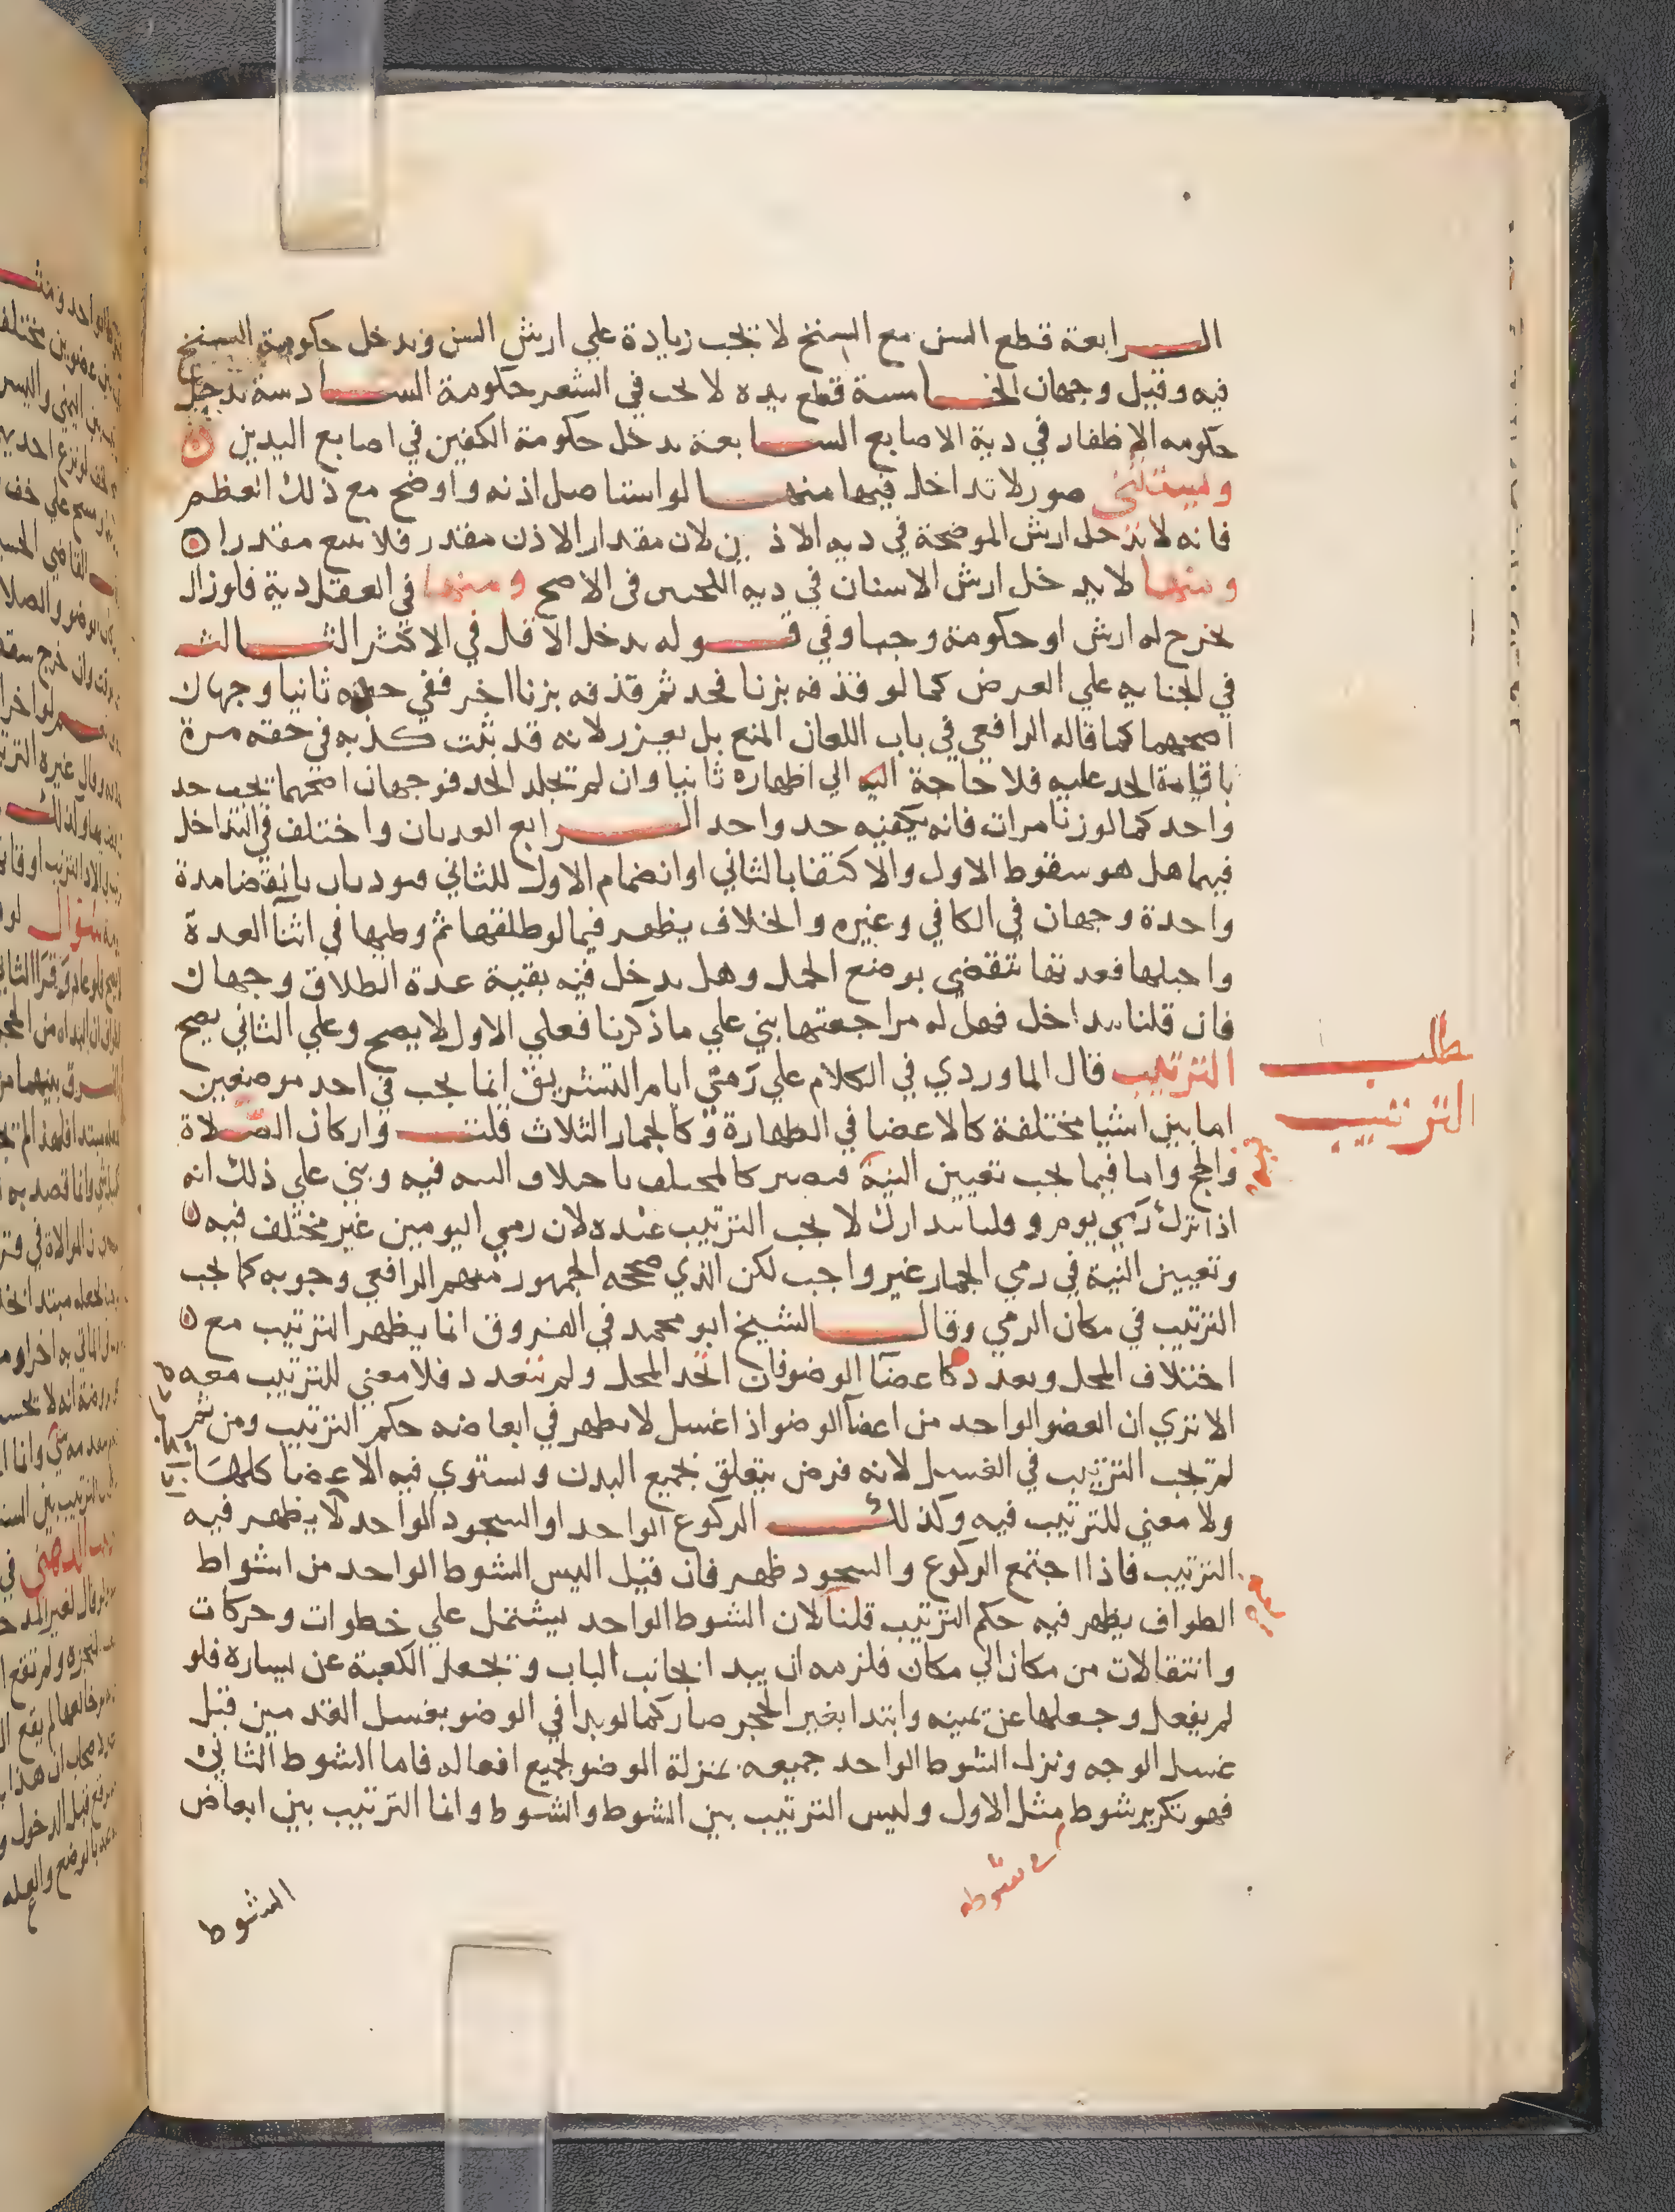 الرابعة قطع السن مع السنخ لا تجب زيادة علي ارش السن وتدخل حكومة السنخ
فيه وقيل وجهان الخامسة قطع يده لا يجب في الشعر حكومة السادسة تدخل
حكومه الاظفار في دية الاصابع السابعة يدخل حكومة الكفين في اصابع اليدين
ويستثني صور لا تداخل فيها منها لو استاصل اذنه واوضح مع ذلك العظم
فانه لا تدخل ارش الموضحة في ديه الاذن لان مقدار الاذن مقدر فلا يتبع مقدرا
ومنها لا يدخل ارش الاسنان في ديه اللحيين في الاصح ومنها في العقل دية فلو زال
بجرح له ارش او حكومة وجبا وفي قوله يدخل الاقل في الاكثر الثالث
في الجنايه علي العرض كما لو قذفه بزنا فحد ثم قذفه بزنا اخر ففي حده ثانيا وجهان
اصحهما كما قاله الرافعي في باب اللعان المنع بل يعزر لانه قد ثبت كذبه في حقه مرة
باقامة الحد عليه فلا حاجة اليه الي اظهاره ثانيا وان لم تجلد الحد فوجهان اصحهما تجب حد
واحد كما لو زنا مرات فانه يكفيه حد واحد الرابع العدتان واختلف في التداخل
فيهما هل هو سقوط الاول والاكتفا بالثاني او انضمام الاول للثاني فيوديان بانقضا مدة
واحدة وجهان في الكافي وغيره والخلاف يظهر فيما لو طلقها ثم وطيها في اثنآ العدة
واحبلها فعدتها تنقضي بوضع الحمل وهل يدخل فيه بقية عدة الطلاق وجهان
فان قلنا يتداخل فهل له مراجعتها بني علي ما ذكرنا فعلي الاول لا يصح وعلي الثاني يصح
الترتيب قال الماوردي في الكلام علي رمي ايام التشريق انما يجب في احد موضعين
اما بين اشيا مختلفة كالاعضا في الطهارة وكالجمار الثلاث قلت واركان الصلاة
والحج واما فيما يجب تعيين النية فيصير كالمختلف باختلاف النيه فيه وبني علي ذلك انه
اذا ترك رمي يوم وقلنا يتدارك لا يجب الترتيب عنده لان رمي اليومين غير مختلف فيه
وتعيين النية في رمي الجمار غير واجب لكن الذي صححه الجمهور منهم الرافعي وجوبه كما يجب
الترتيب في مكان الرمي وقال الشيخ ابو محمد في الفروق انما يظهر الترتيب مع
اختلاف المحل وتعدده كاعضآ الوضو فان اتحد المحل ولم يتعدد فلا معني للترتيب معه
الا تري ان العضو الواحد من اعضآ الوضو اذا غسل لا يظهر في ابعاضه حكم الترتيب ومن ثم
لم تجب الترتيب في الغسل لانه فرض يتعلق بجميع البدن وتستوي فيه الاعضا كلها
ولا معني للترتيب فيه وكذلك الركوع الواحد او السجود الواحد لا يظهر فيه
الترتيب فاذا اجتمع الركوع والسجود ظهر فان قيل اليس الشوط الواحد من اشواط
الطواف يظهر فيه حكم الترتيب قلنا لان الشوط الواحد يشتمل علي خطوات وحركات
وانتقالات من مكان الي مكان فلزمه ان يبدا بجانب الباب وتجعل الكعبة عن يساره فلو
لم يفعل وجعلها عن يمينه وابتدا بغير الحجر صار كما لو بدا في الوضو بغسل القدمين قبل
غسل الوجه ونزل الشوط الواحد جميعه بمنزلة الوضو لجميع افعاله فاما الشوط الثاني
فهو تكرير شوط مثل الاول وليس الترتيب بين الشوط والشوط وانما الترتيب بين ابعاض
الشوط
مطلب
الترتيب